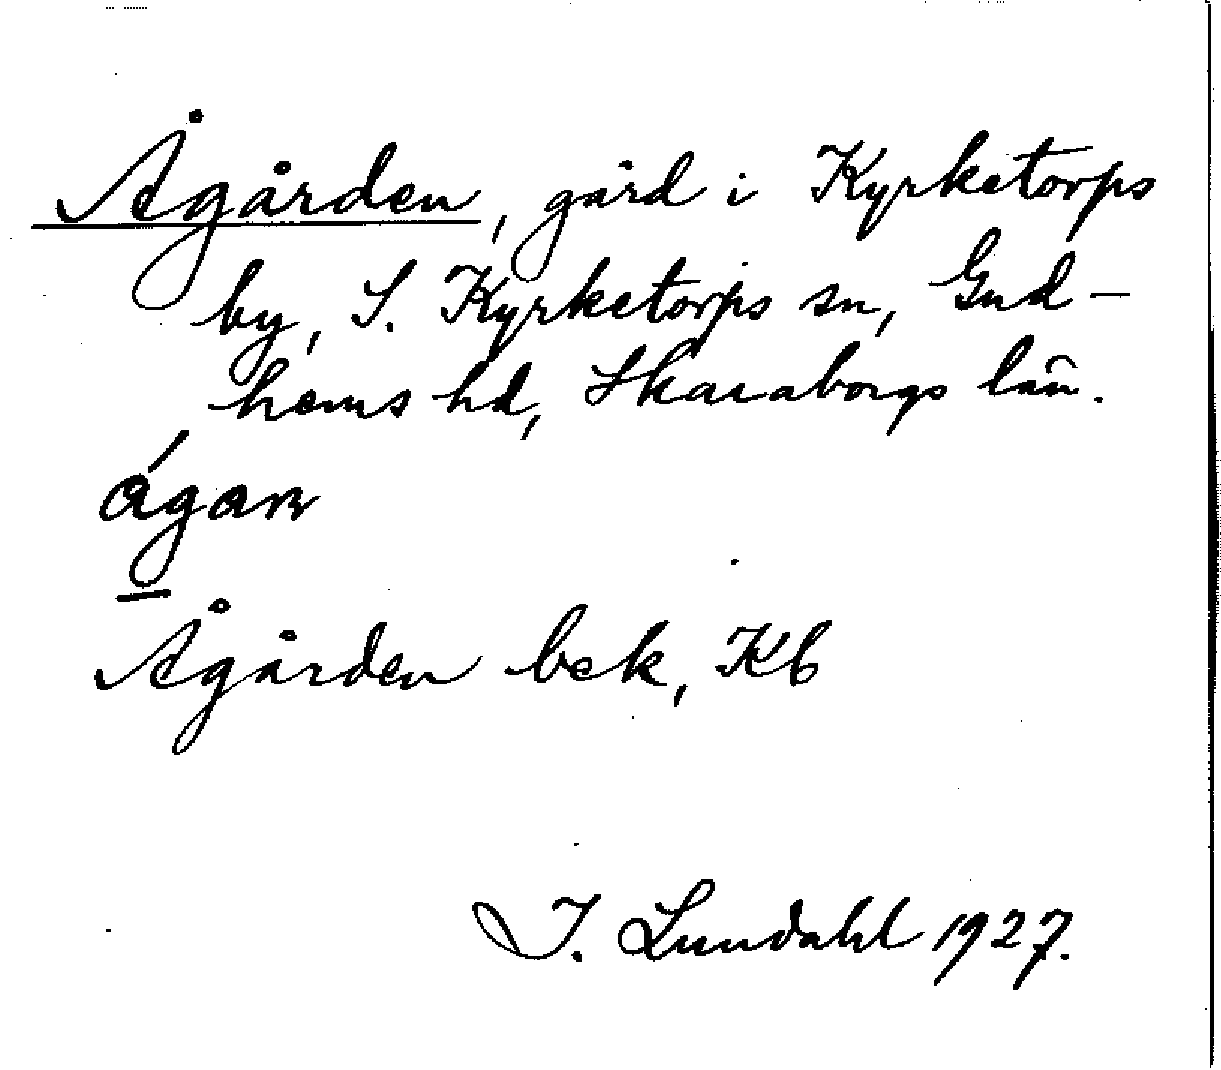 Ågården, gård i Kyrketorps
by, S. Kyrketorps sn, Gud-
hems hd, Skaraborgs län.
ágan
Ågården bek, Kb
I. Lundahl 1927.